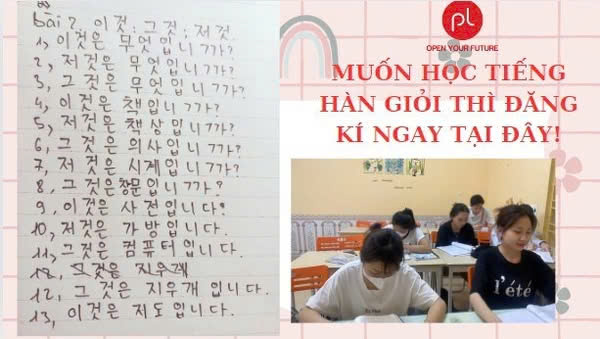 bài 2, 이것, 그것, 저것
1, 이것은 무엇입니까?
2, 저것은 무엇입니까?
3, 그것은 무엇입니까?
4, 이것은 책입니까?
5, 저것은 책상입니까?
6, 그것은 의사입니까?
7, 저것은 시계입니까?
8, 그것은 창문입니까?
9, 이것은 사전입니다.
10, 저것은 가방입니다.
11, 그것은 컴퓨터입니다.
12, 그것은 지우개입니다.
13, 이것은 지도입니다.
pl
OPEN YOUR FUTURE
MUỐN HỌC TIẾNG
HÀN GIỎI THÌ ĐĂNG
KÍ NGAY TẠI ĐÂY!
l'été